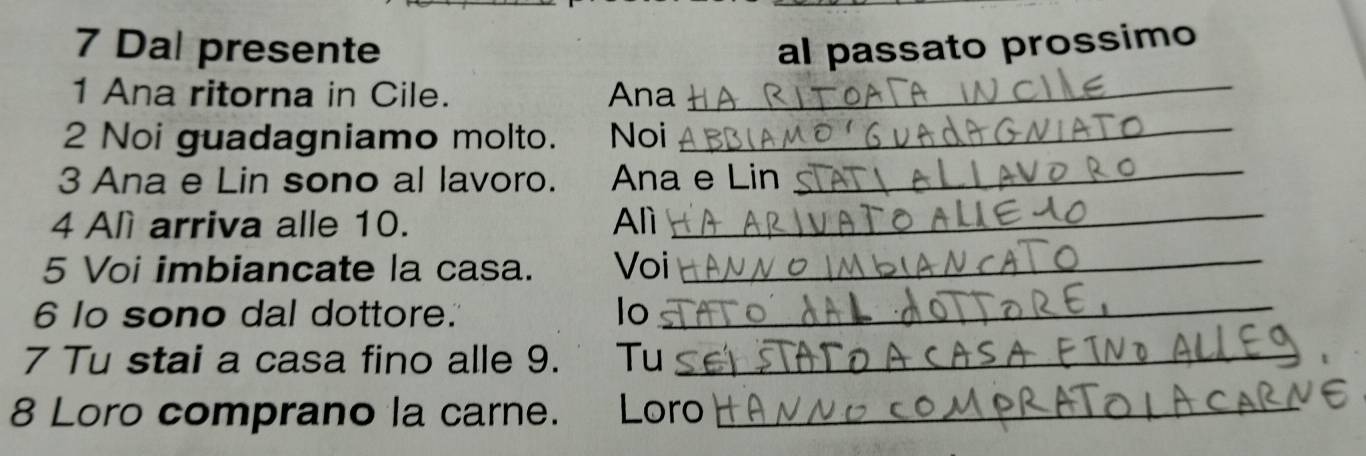 7 Dal presente al passato prossimo
1 Ana ritorna in Cile. Ana HA RITOATA IN CILE
2 Noi guadagniamo molto. Noi ABBIAMO GUADAGNIATO
3 Ana e Lin sono al lavoro. Ana e Lin STATI AL LAVORO
4 Alì arriva alle 10. Alì HA ARIVATO ALLE 10
5 Voi imbiancate la casa. Voi HANNO IMbIANCATO
6 Io sono dal dottore. Io STATO dAL dOTTORE.
7 Tu stai a casa fino alle 9. Tu SEI STATO A CASA FINO ALLE 9.
8 Loro comprano la carne. Loro HANNO COMPRATO LA CARNE.